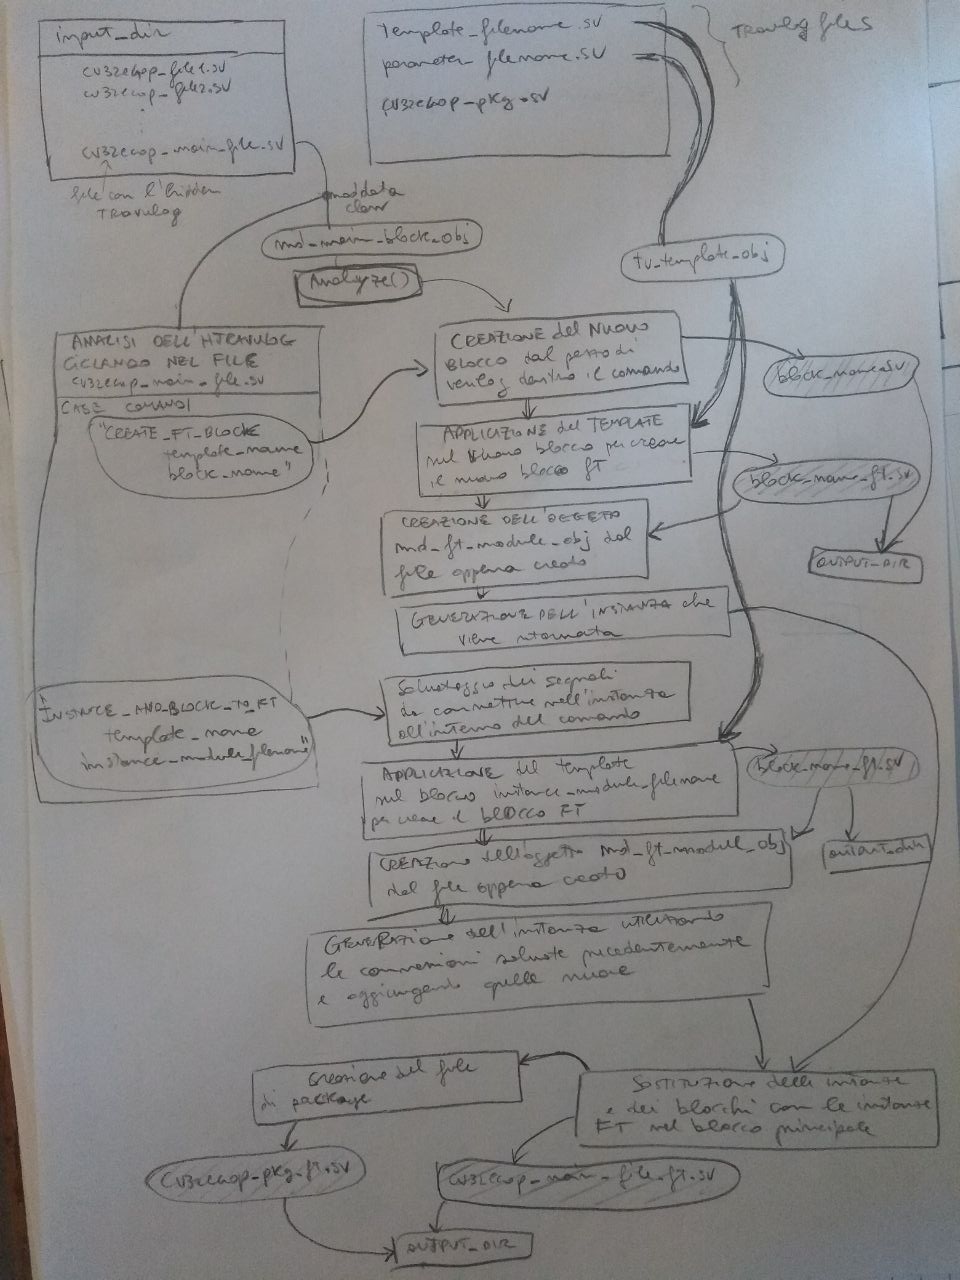 input_dir
cv32e40p_file1.sv
cv32e40p_file2.sv
.
.
cv32e40p_main_file.sv
file con l'hidden
TRAVULOG
Template_filename.sv
parameter_filename.sv
cv32e40p_pkg.sv
TRAVULOG files
moddata
class
md_main_block_obj
Analyze()
tv_template_obj
ANALISI DELL'HTRAVULOG
CICLANDO NEL FILE
cv32e40p_main_file.sv
CASE COMANDI
"CREATE_FT_BLOCK
template_name
block_name"
INSTANCE_AND_BLOCK_TO_FT
template_name
instance_module_filename"
CREAZIONE del NUOVO
BLOCCO dal pezzo di
verilog dentro il comando
block_name.sv
APPLICAZIONE del TEMPLATE
sul nuovo blocco per creare
il nuovo blocco ft
block_name_ft.sv
CREAZIONE DELL'OGGETTO
md_ft_module_obj dal
file appena creato
OUTPUT_DIR
GENERAZIONE DELL'INSTANZA che
viene ritornata
Salvataggio dei segnali
da connettere nell'instanza
all'interno del comando
APPLICAZIONE del template
sul blocco instance_module_filename
per creare il blocco FT
block_name_ft.sv
CREAZIONE dell'oggetto md_ft_module_obj
dal file appena creato
output_dir
GENERAZIONE dell'instanza utilizzando
le connessioni salvate precedentemente
e aggiungendo quelle nuove
SOSTITUZIONE delle instanze
e dei blocchi con le instanze
FT nel blocco principale
Creazione del file
di package
cv32e40p_pkg_ft.sv
cv32e40p_main_file_ft.sv
OUTPUT_DIR